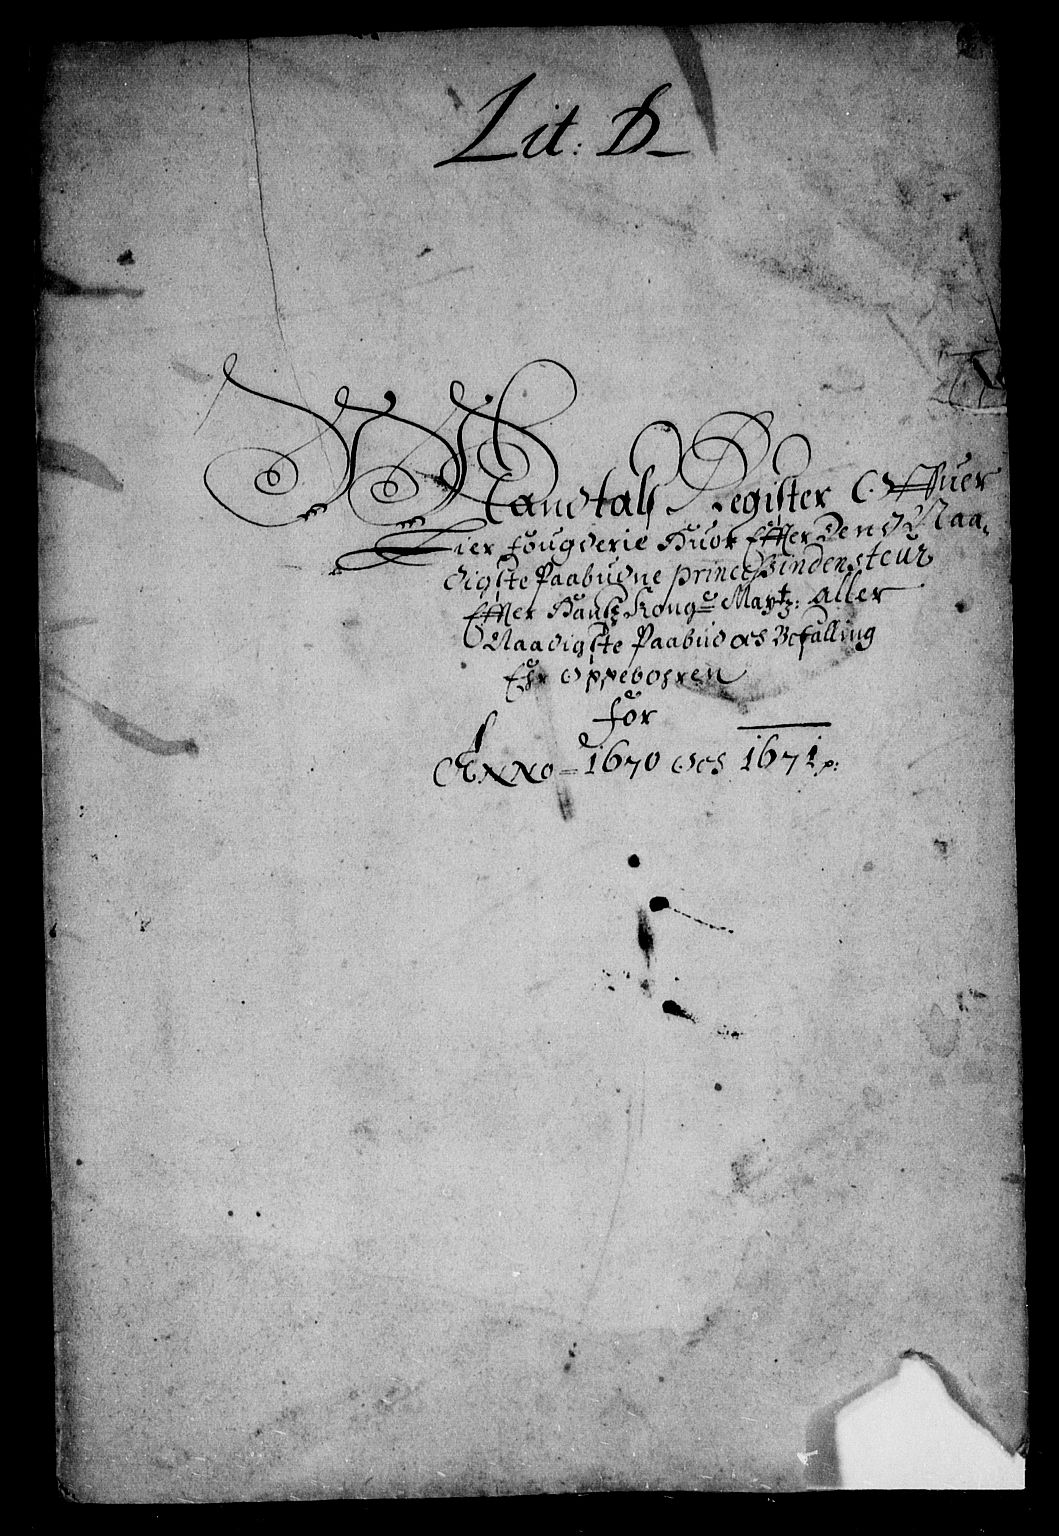 Lit: D
Mandtals Register Offuer
Lier fougderie Huor Effter Dend Naa,
digste Paabudne princessindensteur
Effter Hans Kong: Maÿtz: aller
Naadigste Paabud och Befalling
Ehr oppebohren
for
Anno 1670 och 1671 p: